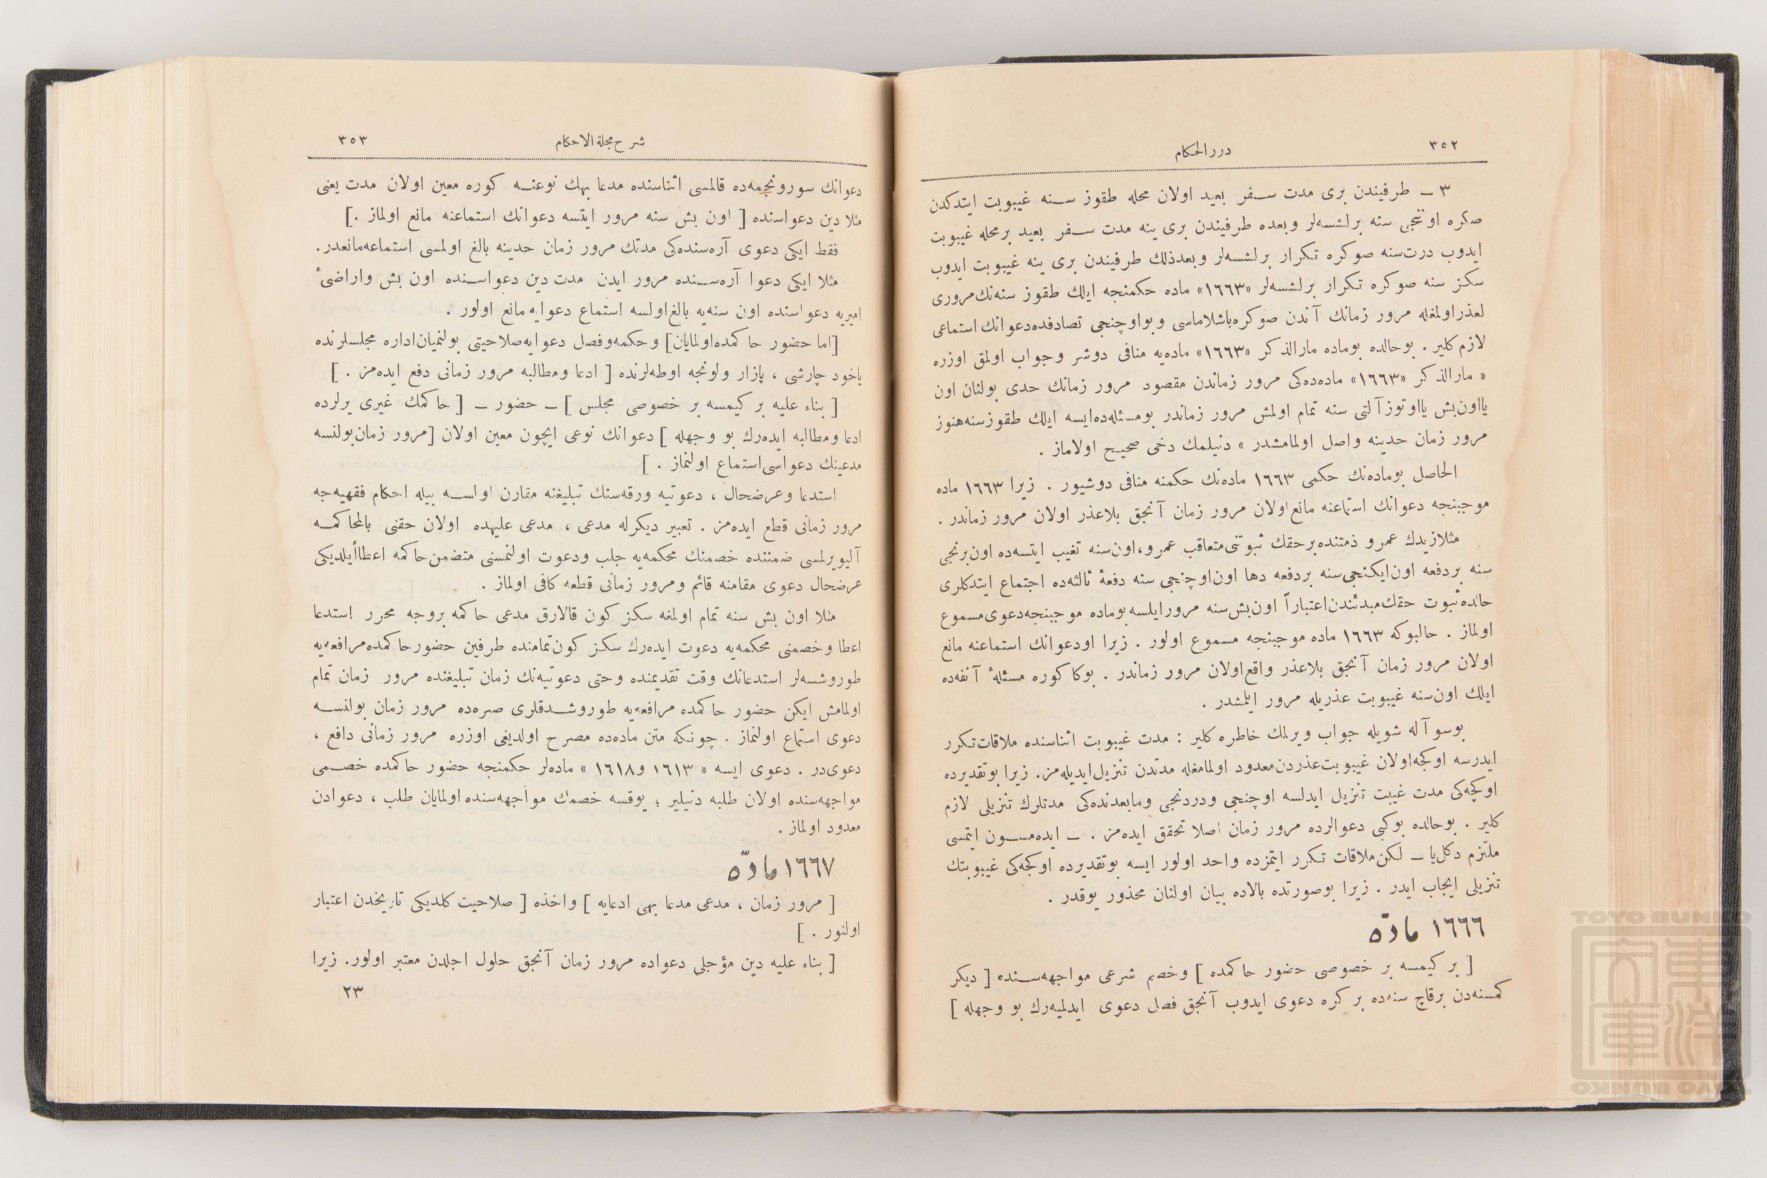 ٣٥٢
درر الحكام
٣ ــ طرفيندن برى مدت سـفر بعيد اولان محله طقوز سـنه غيبوبت ايتدكدن
صكره اوننجى سنه برلشسه‌لر وبعده طرفيندن برى ينه مدت سـفر بعيد بر محله غيبوبت
ايدوب درت سنه صوكره تكرار برلشسه‌لر وبعدذلك طرفيندن برى ينه غيبوبت ايدوب
سكز سنه صوكره تكرار برلشسه‌لر «١٦٦٣» ماده حكمنجه ايلك طقوز سنه‌نك مرورى
لعذر اولمغله مرور زمانك آندن صوكره باشلاماسى وبو اوچنجى تصادفده دعوانك استماعى
لازم كلير . بو حالده بوماده مارالذكر «١٦٦٣» ماده‌يه منافى دوشر وجواب اولمق اوزره
« مارالذكر «١٦٦٣» ماده‌ده‌كى مرور زماندن مقصود مرور زمانك حدى بولنان اون
يا اون بش يا اوتوز آلتى سنه تمام اولمش مرور زماندر بو مسئله‌ده ايسه ايلك طقوز سنه هنوز
مرور زمان حدينه واصل اولمامشدر » دنيلمك دخى صحيح اولاماز .
الحاصل بوماده‌نك حكمى ١٦٦٣ ماده‌نك حكمنه منافى دوشيور . زيرا ١٦٦٣ ماده
موجبنجه دعوانك استماعنه مانع اولان مرور زمان آنجق بلاعذر اولان مرور زماندر .
مثلا زيدك عمرو ذمتنده بر حقك ثبوتنى متعاقب عمرو، اون سنه تغيب ايتسه‌ده اون برنجى
سنه بر دفعه اون ايكنجى سنه بر دفعه دها اون اوچنجى سنه دفعۀ ثالثه‌ده اجتماع ايتدكلرى
حالده ثبوت حقك مبدئندن اعتباراً اون بش سنه مرور ايلسه بوماده موجبنجه دعوى مسموع
اولماز . حالبوكه ١٦٦٣ ماده موجبنجه مسموع اولور . زيرا او دعوانك استماعنه مانع
اولان مرور زمان آنجق بلاعذر واقع اولان مرور زماندر . بوكا كوره مسئلۀ آنفه‌ده
ايلك اون سنه غيبوبت عذريله مرور ايتمشدر .
بو سوآله شويله جواب ويرلمك خاطره كلير : مدت غيبوبت اثناسنده ملاقات تكرر
ايدرسه اوكجه اولان غيبوبت عذردن معدود اولمامغله مدتدن تنزيل ايديله‌مز. زيرا بو تقديرده
اوكجه‌كى مدت غيبت تنزيل ايدلسه اوچنجى ودردنجى ومابعدنده‌كى مدتلرك تنزيلى لازم
كلير . بو حالده بوكبى دعوالرده مرور زمان اصلا تحقق ايده‌مز . ــ ايده‌مسـون ايتمسى
ملتزم دكل يا ــ لكن ملاقات تكرر ايتمزده واحد اولور ايسه بو تقديرده اوكجه‌كى غيبوبتك
تنزيلى ايجاب ايدر . زيرا بوصورتده بالاده بيان اولنان محذور يوقدر .
١٦٦٦ مادّه
[ بر كيمسه بر خصوصى حضور حاكمده ] وخصم شرعى مواجهه‌سـنده [ ديكر
كمسنه‌دن برقاچ سنه‌ده بر كره دعوى ايدوب آنجق فصل دعوى ايدلميه‌رك بو وجهله ]
شرح مجلة الاحكام
٣٥٣
دعوانك سورونجمه‌ده قالمسى اثناسنده مدعا بهك نوعنـه كوره معين اولان مدت يعنى
مثلا دين دعواسنده [ اون بش سنه مرور ايتسه دعوانك استماعنه مانع اولماز .]
فقط ايكى دعوى آره‌سنده‌كى مدتك مرور زمان حدينه بالغ اولمسى استماعه مانعدر.
مثلا ايكى دعوا آره‌سـنده مرور ايدن مدت دين دعواسـنده اون بش واراضىٔ
اميريه دعواسنده اون سنه‌يه بالغ اولسه استماع دعوايه مانع اولور .
[اما حضور حاكمده اولمايان] وحكمه وفصل دعوايه صلاحيتى بولنميان اداره مجلسلرنده
ياخود چارشى ، پازار ولونجه اوطه‌لرنده [ ادعا ومطالبه مرور زمانى دفع ايده‌مز . ]
[ بناء عليه بر كيمسه بر خصوصى مجلس ] ــ حضور ــ [ حاكمك غيرى يرلرده
ادعا ومطالبه ايده‌رك بو وجهله ] دعوانك نوعى ايچون معين اولان [مرور زمان بولنسه
مدعينك دعواسى استماع اولنماز . ]
استدعا وعرضحال ، دعوتيه ورقه‌سنك تبليغنه مقارن اولسـه بيله احكام فقهيه‌جه
مرور زمانى قطع ايده‌مز . تعبير ديكرله مدعى ، مدعى عليهده اولان حقنى بالمحاكمـه
آليويرلمسى ضمننده خصمنك محكمه‌يه جلب ودعوت اولنمسنى متضمن حاكمه اعطا أيلديكى
عرضحال دعوى مقامنه قائم ومرور زمانى قطعه كافى اولماز .
مثلا اون بش سنه تمام اولمغه سكز كون قالارق مدعى حاكمه بروجه محرر استدعا
اعطا وخصمنى محكمه‌يه دعوت ايده‌رك سكز كون تمامنده طرفين حضور حاكمده مرافعه‌يه
طوروشسه‌لر استدعانك وقت تقديمنده وحتى دعوتيه‌نك زمان تبليغنده مرور زمان تمام
اولمامش ايكن حضور حاكمده مرافعه‌يه طوروشـدقلرى صره‌ده مرور زمان بولنسـه
دعوى استماع اولنماز . چونكه متن ماده‌ده مصرح اولديغى اوزره مرور زمانى دافع ،
دعوى‌در . دعوى ايسه « ١٦١٣ و ١٦١٨ » ماده‌لر حكمنجه حضور حاكمده خصـمى
مواجهه‌سنده اولان طلبه دنيلير ؛ يوقسه خصمك مواجهه‌سنده اولمايان طلب ، دعوادن
معدود اولماز .
١٦٦٧ مادّه
[ مرور زمان ، مدعى مدعا بهى ادعايه ] واخذه [ صلاحيت كلديكى تاريخدن اعتبار
اولنور . ]
[ بناء عليه دين مؤجلى دعواده مرور زمان آنجق حلول اجلدن معتبر اولور. زيرا
٢٣
TOYO BUNKO
東洋文庫
TOYO BUNKO